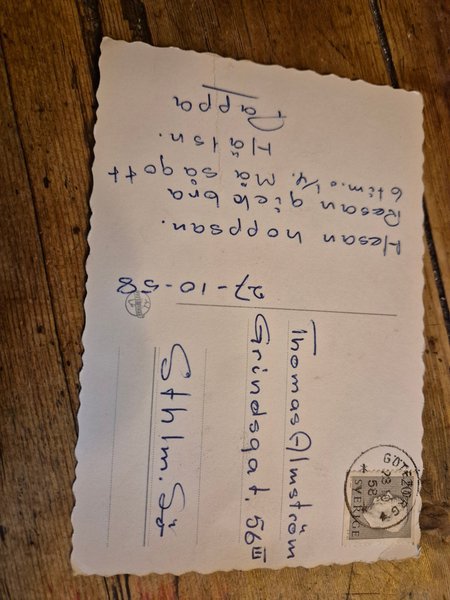 27-10-58
Hesan hoppsan.
Resan gick bra
6 tim. o 1/4. Må så gott
Hälsn.
Pappa
Thomas Almström
Grindsgat. 56 III
Sthlm. Sö
GÖTEBORG
58
SVERIGE